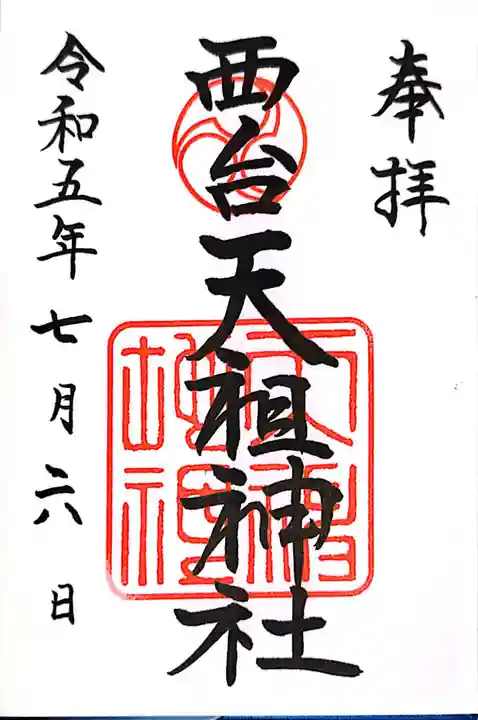 奉拝
西台天祖神社
令和五年七月六日